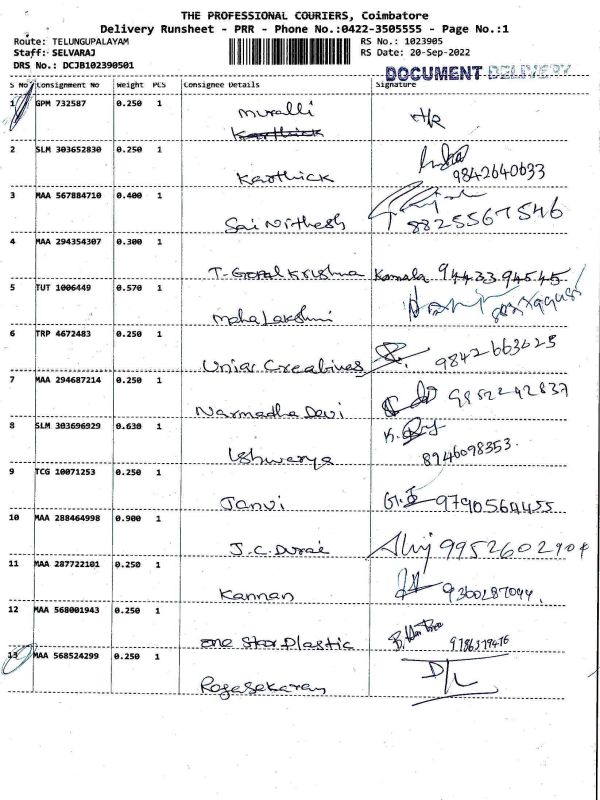 THE PROFESSIONAL COURIERS, Coimbatore
Delivery Runsheet - PRR - Phone No.:0422-3505555 - Page No.:1
Route: TELUNGUPALAYAM RS No.: 1023905
Staff: SELVARAJ RS Date: 20-Sep-2022
DRS No.: DCJB102390501
DOCUMENT DELIVERY
S No Consignment No Weight PCS Consignee Details Signature
1 GPM 732587 0.250 1 Muralli
Karthick
2 SLM 303652830 0.250 1 Karthick 9842640633
3 MAA 567884710 0.400 1 Sai Nithesh 8825567546
4 MAA 294354307 0.300 1 T-Gopal Krishna Kamala 9443394545
5 TUT 1006449 0.570 1 Maha Lakshmi
6 TRP 4672483 0.250 1 Uniar Creatives 9842663625
7 MAA 294687214 0.250 1 Narmadha Devi
8 SLM 303696929 0.630 1 Ishwarya 8946098353.
9 TCG 10071253 0.250 1 Janvi 9790564455
10 MAA 288464998 0.900 1 J.C. Durai 9952602904
11 MAA 287722101 0.250 1 Kannan
12 MAA 568001943 0.250 1 One Star Plastic
13 MAA 568524299 0.250 1 Rajasekaran